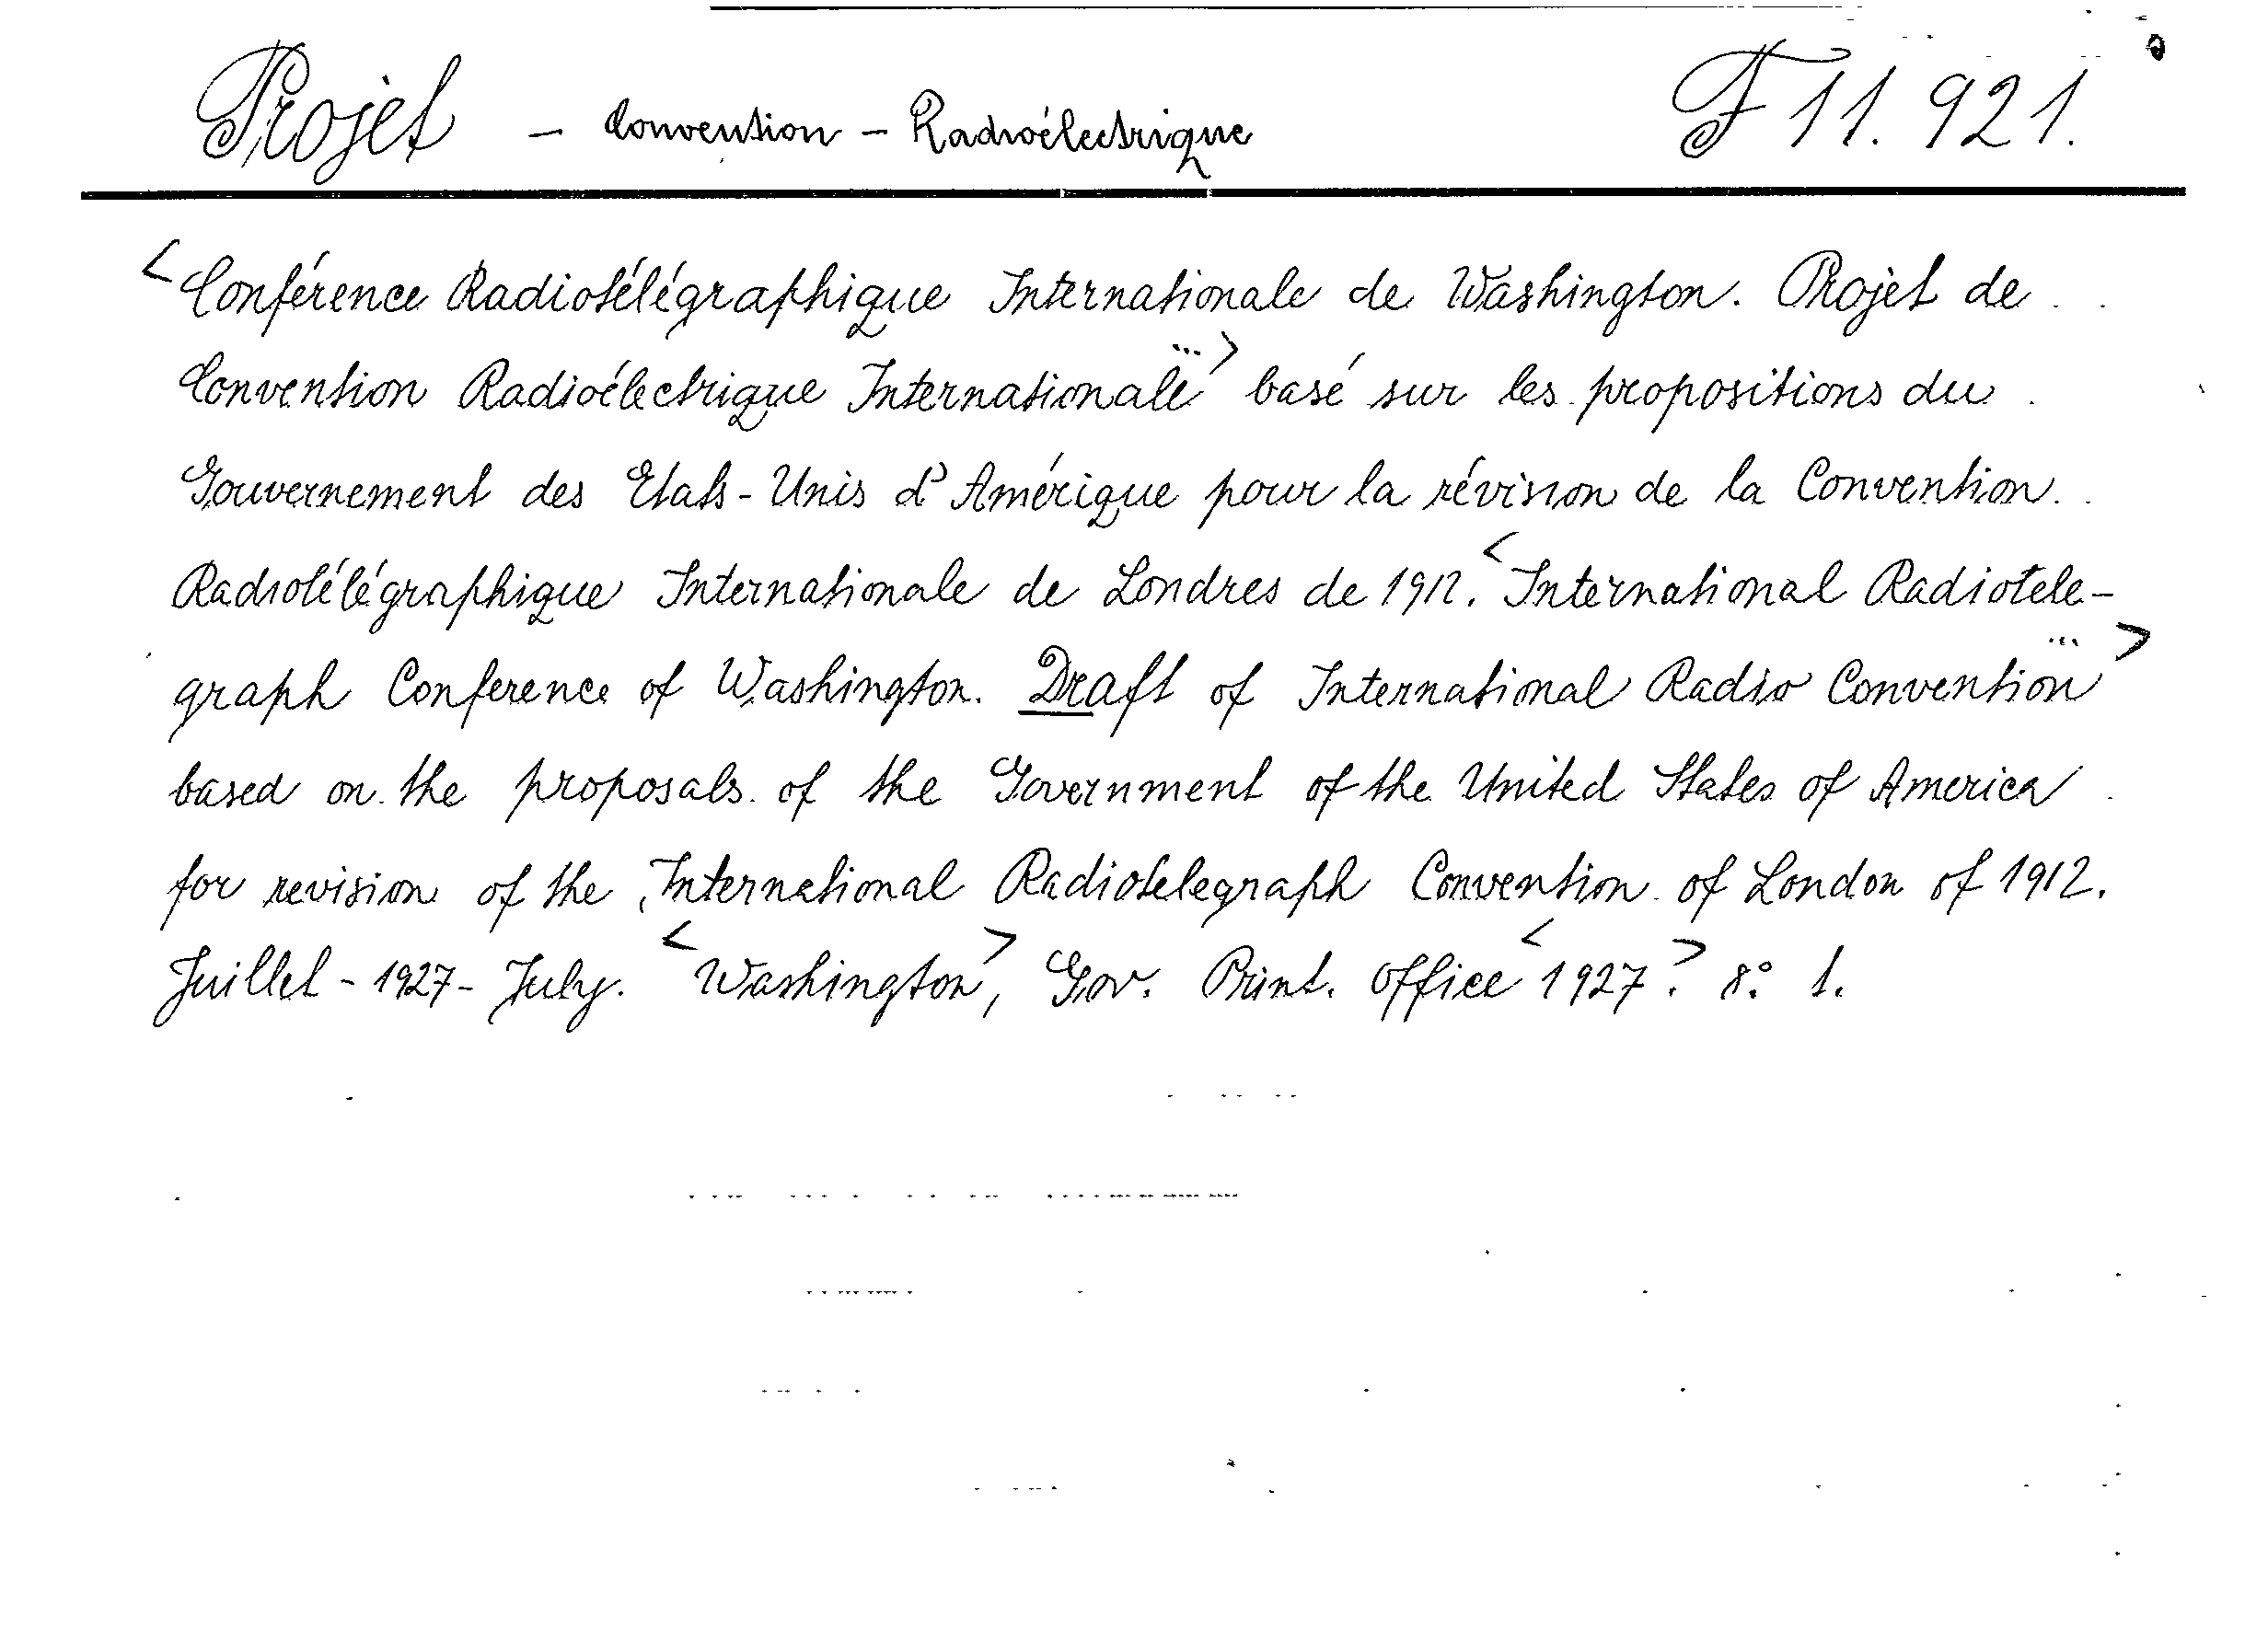 Projet - Convention - Radioélectrique F 11. 921.
<Conférence Radiotélégraphique Internationale de Washington. Projet de
Convention Radioélectrique Internationale ...> basé sur les propositions du
Gouvernement des Etats-Unis d'Amérique pour la révision de la Convention
Radiotélégraphique Internationale de Londres de 1912. <International Radiotele-
graph Conference of Washington. Draft of International Radio Convention ...>
based on the proposals of the Government of the United States of America
for revision of the International Radiotelegraph Convention of London of 1912.
Juillet - 1927 - July. <Washington>, Gov. Print. Office <1927.> 8° 1.